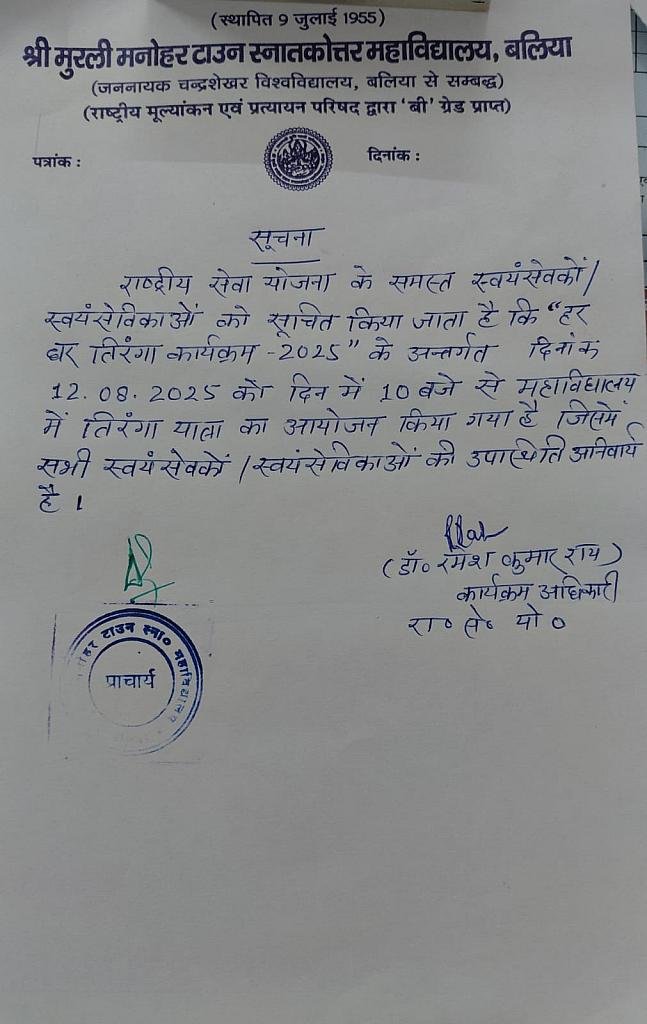 (स्थापित 9 जुलाई 1955)
श्री मुरली मनोहर टाउन स्नातकोत्तर महाविद्यालय, बलिया
(जननायक चन्द्रशेखर विश्वविद्यालय, बलिया से सम्बद्ध)
(राष्ट्रीय मूल्यांकन एवं प्रत्यायन परिषद द्वारा 'बी' ग्रेड प्राप्त)
पत्रांक :
दिनांक :
सूचना
राष्ट्रीय सेवा योजना के समस्त स्वयंसेवकों/
स्वयंसेविकाओं को सूचित किया जाता है कि "हर
घर तिरंगा कार्यक्रम -2025" के अन्तर्गत दिनांक
12.08.2025 को दिन में 10 बजे से महाविद्यालय
में तिरंगा यात्रा का आयोजन किया गया है जिसमें
सभी स्वयंसेवकों /स्वयंसेविकाओं की उपस्थिति अनिवार्य
है ।
(डॉ० रमेश कुमार राय)
कार्यक्रम अधिकारी
रा० से० यो०
मनोहर टाउन स्ना० महाविद्यालय
प्राचार्य